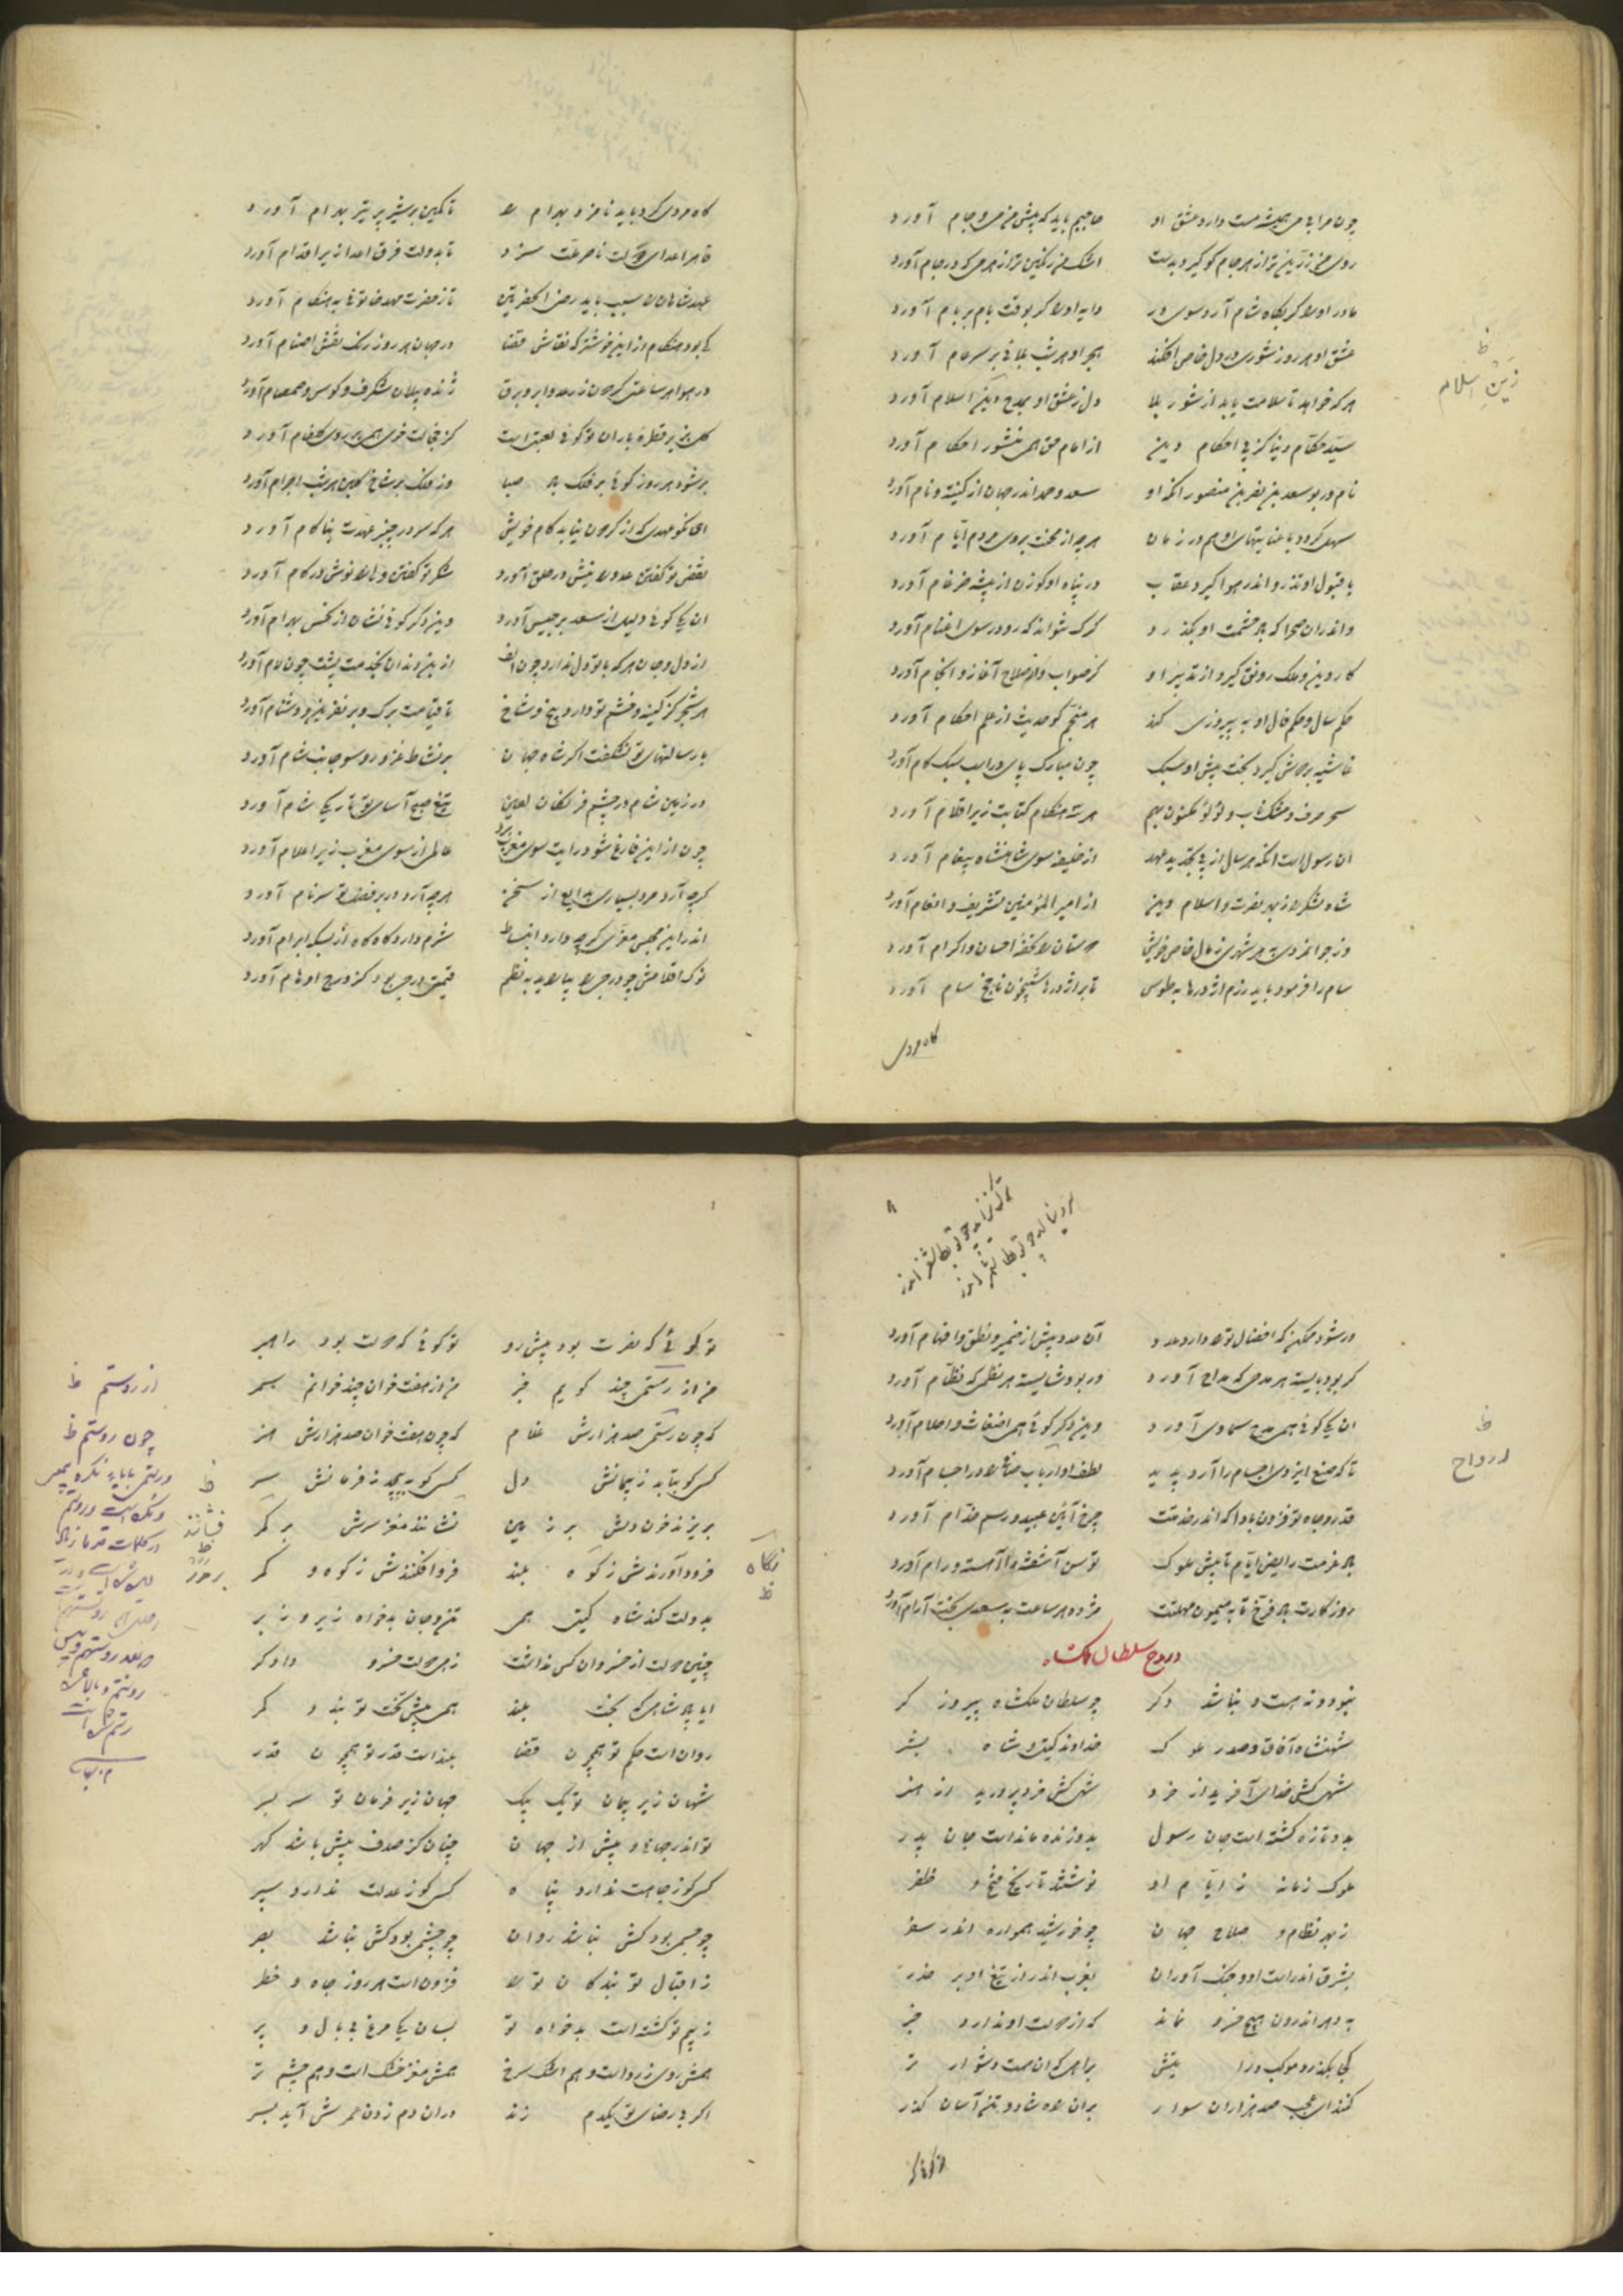 چون مرا بی می همیشه مست دارد عشق او حاجبم باید که پیش من می و جام آورد
روی من زرین تر از هر جام کو گیرد بدست اشک من رنگین تر از هر می که در جام آورد
مادر او را گر بگاه شام آرد سوی در دایه او را گر بوقت بام بر بام آورد
عشق او هر روز شوری در دل خاص افکند هجر او هر شب بلائی بر سر عام آورد
ظ
زین اسلام
هر که خواهد تا سلامت یابد از شور بلا دل ز عشق او بمدح دین اسلام آورد
سید حکام دنیا کز پی احکام دین از امام حق همی منشور احکام آورد
نام در بو سعد بن نصر بن منصور آنکه او سعد و حمد اندر جهان از کنیت و نام آورد
سهل گردد با عنایتهای او هم در زمان هر چه از محنت بروی مردم ایام آورد
با قبول او تذرو اندر هوا گیرد عقاب در پناه او گوزن از بیشه ضرغام آورد
واندران صحرا که باد حشمت او بگذرد گرگ نتواند که رو در سوی اغنام آورد
کار دین و ملک رونق گیرد از تدبیر او کز صواب و از صلاح آغاز و انجام آورد
حکم سال و حکم فال او به پیروزی کند هر منجم کو حدیث از علم احکام آورد
غاشیه برجیس گیرد بخت پیش او سبک چون مبارک پای در اسب سبک گام آورد
سحر صرف و مشک ناب و لؤلؤ مکنون بهم هر سه هنگام کتابت زیر اقلام آورد
آن رسولست آنکه هر سال از پی تجدید عهد از خلیفه سوی شاهنشاه پیغام آورد
شاه لشکر را ز بهر نصرت و اسلام و دین از امیر المؤمنین تشریف و انعام آورد
وز جوانمردی بهر شهری ز مال خاص خویش دوستان را تحفه احسان و اکرام آورد
سام را فرمود باید رزم اژدرها به طوس تا بر اژدرها شبیخون ناجخ سام آورد
گاه مردی
گاه مردی کرد باید نامزد بهرام را تا کمین بر شیر پر تیر بهرام آورد
قاهر اعدای دولت ناصر ملت سزد تا بدولت فرق اعدا زیر اقدام آورد
در جهان هر روز رنگ نقش اصنام آورد
در هوا هر ساعتی گردون ز رعد و ابر و برق ژنده پیلان شگرف و کوس و صمصام آورد
گلبن پر قطره باران تو گوئی لعبتی است کز خجالت خوی همی بر روی گلفام آورد
بر شود هر روز گوئی بر فلک باد صبا وز فلک بر شاخ گلبن هر شب اجرام آورد
ای نکو عهدی که از گردون نیابد کام خویش هر که سر در چنبر عهدت بناکام آورد
نقض تو گفتن عدو را نیش در حلق آورد شکر تو گفتن ولی را نوش در کام آورد
آن یکی گوئی دلیل از سعد برجیس آورد وین دگر گوئی نشان از نحس بهرام آورد
از دل و جان هر که با تو دل ندارد چون الف از بن دندان بخدمت پشت چون لام آورد
هر شجر کز کینه و خشم تو دارد بیخ و شاخ تا قیامت برگ و بر نفرین و دشنام آورد
با رسالتهای تو نشگفت اگر شاه جهان بر نشاط غزو رو سوی جانب شام آورد
در زمین شام در چشم فرنگان لعین تیغ صبح آسای تو تاریکی شام آورد
چون از این فارغ شود رایت سوی مغرب برد عالمی از سوی مغرب زیر اعلام آورد
گرچه آرد مرد بسیاری بدایع از سخن هر چه آرد در بر فضل تو سرنام آورد
اندر این مجلس معزی گرچه دارد انبساط شرم دارد گاه گاه از بسکه ابرام آورد
نوک اقلامش چو در جی را بیاراید بنظم قیمتی دری بود کز درج اوهام آورد
۸
ور شود ممکن که افضال ترا دارد عدد آن عدد بیش از ضمیر و نطق و افهام آورد
گر بود بایسته هر مدحی که مداح آورد ور بود شایسته هر نظمی که نظام آورد
ظ
ارواح
آن یکی گوئی همی مدح سماوی آورد وین دگر گوئی همی اضغاث و احلام آورد
تا که صنع ایزدی اجسام را آرد پدید لطف او ارباب دانش را در اجسام آورد
قدر و جاه تو فزون بادا که اندر خدمتت چرخ آیین عبید و رسم خدام آورد
باد عزمت رایض ایام تا پیش ملوک توسن آشفته را آهسته و رام آورد
روز کارت باد فرخ تا به میمون مهلتت مژده هر ساعت به سعدی بخت آرام آورد
در مدح سلطان ملکشاه
نبود و نه هست و نباشد دگر چو سلطان ملکشاه پیروزگر
شهنشاه آفاق و صدر ملوک خداوند گیتی و شاه بشر
شهی کش خدای آفرید از خرد شهی کش خرد پرورید از هنر
بدو تازه گشته است جان رسول بدو زنده مانده است جان پدر
ملوک زمانه ز ایام او نوشتند تاریخ فتح و ظفر
ز بهر نظام و صلاح جهان چو خورشید همواره اندر سفر
بشرق اندر است او و جنگ آوران بغرب اندر از تیغ او بر حذر
به دهر اندرون هیچ خسرو نماند که از دولت او ندارد خبر
کجا بگذرد موکب و رایتش براهی که آن هست دشوارتر
کند ای عجب صد هزاران سوار بر آن راه شاد و تن آسان گذر
تو گوئی که نصرت بود پیش رو تو گوئی که دولت بود راهبر
من از رستمی چند گویم خبر من از هفت خوان چند خوانم سمر
که چون رستمی صد هزارش غلام که چون هفت خوان صد هزارش هنر
کسی کو بتابد ز پیمانش دل کسی کو بپیچد ز فرمانش سر
بریزند خون دلش بر زمین نشانند مغز سرش بر کمر
فرود آورندش ز کوه بلند فرو افکنندش ز کوه و کمر
ز گاه
ظ
بدولت کند شاه گیتی همی تن و جان بدخواه زیر و زبر
چنین دولت از خسروان کس نداشت زهی دولت خسرو دادگر
ایا پادشاهی که بخت بلند همی پیش تخت تو بندد کمر
روان است حکم تو همچون قضا بلند است قدر تو همچون قدر
شهان زیر پیمان تو یک بیک جهان زیر فرمان تو سر بسر
تو اندر جهانی و بیش از جهان چنان کز صدف بیش باشد گهر
کسی کو ز جاهت ندارد پناه کسی کو ز عدلت ندارد سپر
چو جسمی بود کش نباشد روان چو چشمی بود کش نباشد بصر
ز اقبال تو بندگان ترا فزون است هر روز جاه و خطر
ز بیم تو گشته است بدخواه تو بسان یکی مرغ بی بال و پر
همش روی زرد است و هم اشک سرخ همش مغز خشک است و هم چشم تر
اگر بی رضای تو یکدم زند در آن دم زدن عمرش آید بسر
از روستم ظ
چون روستم ظ
ظ
فشانند
ظ